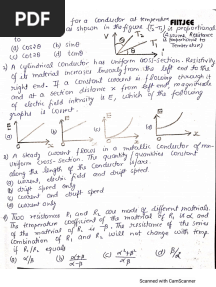 PDF
for a conductor at temperature
FIITJEE
as shown in the figure (T₂-T₁) is proportional
to
(Assume Resistance
is Proportional to
Temperature)
V
T₁
T₂
I
(a) Cos2θ (b) Sinθ
(c) Cot2θ (d) tanθ
A Cylindrical Conductor has uniform cross-section. Resistivity
of its material increases linearly from the left end to the
right end. If a Constant current is flowing through it
and at a section distance x from left end, magnitude
of electric field intensity is E, which of the following
graphs is Correct.
(a) (b) (c) (d)
A steady current flows in a metallic conductor of non-
uniform Cross-section. The quantity/quantities constant
along the length of the Conductor
(a) current, electric field and drift speed
(b) drift speed only
(c) current and drift speed
(d) current only
Two resistances R₁ and R₂ are made of different materials.
The temperature coefficient of the material of R₁ is α and
of the material of R₂ is -β. The resistance of the series
combination of R₁ and R₂ will not change with temp.
if R₁/R₂ equals
(a) α/β (b) α+β/α-β (c) α²+β²/αβ (d) β/α
Scanned with CamScanner